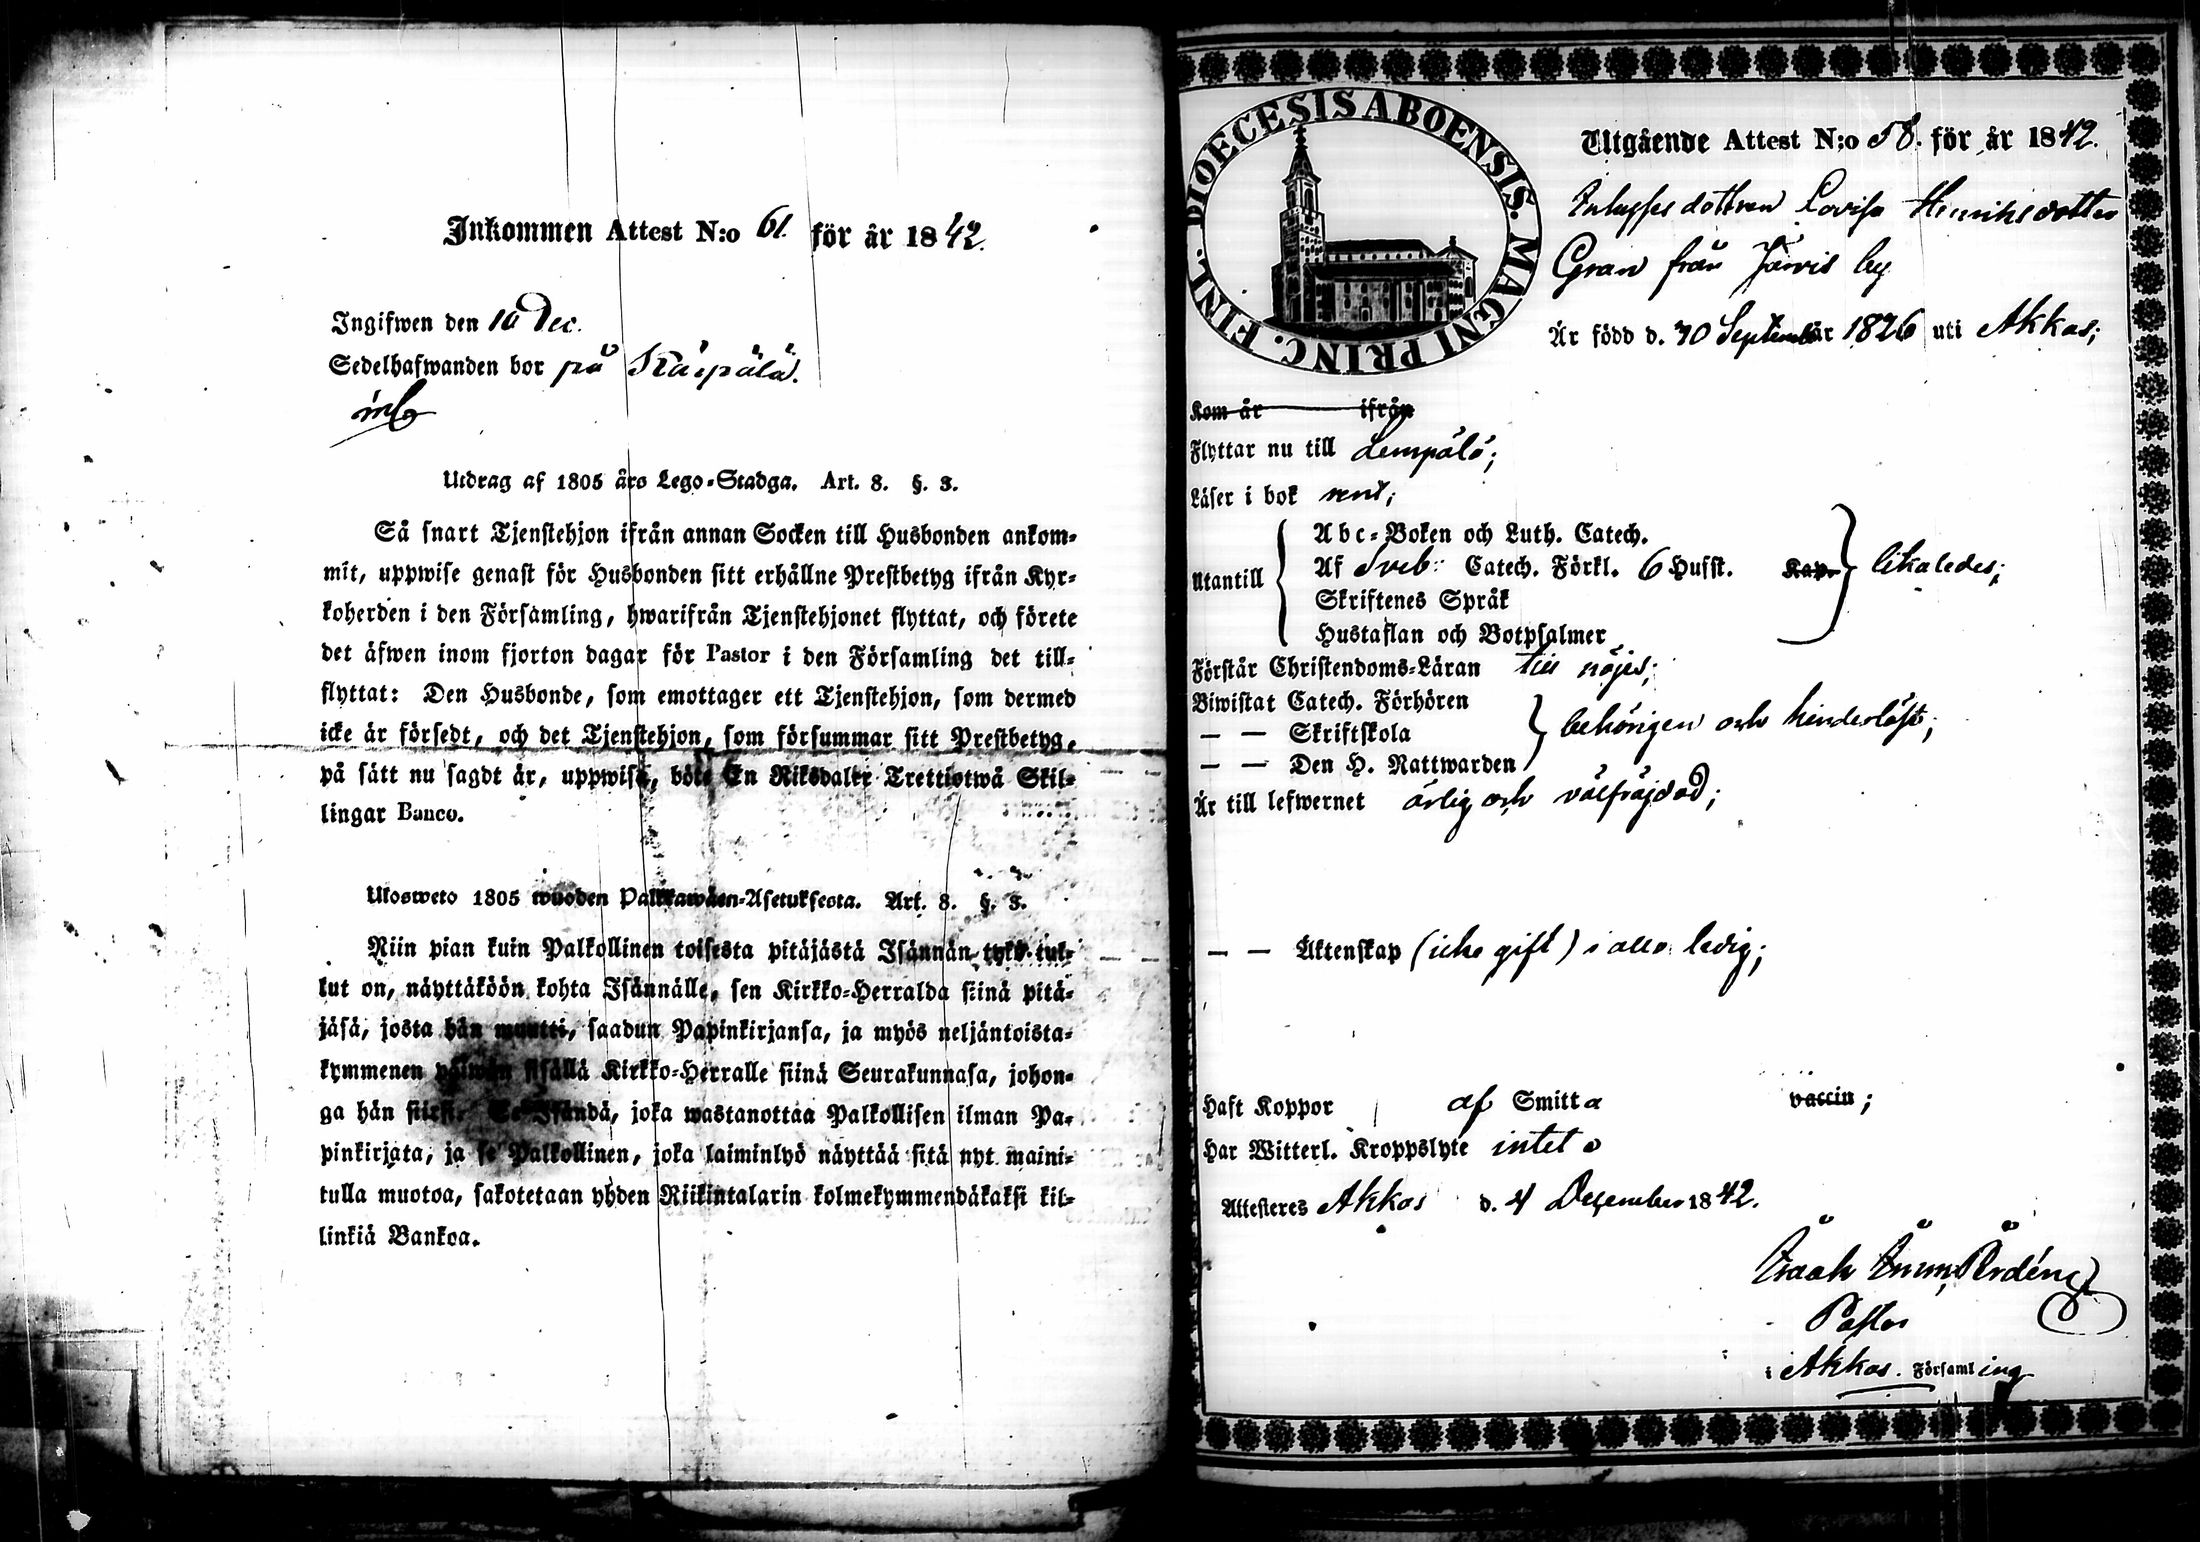 Inkommen Attest N:o 61. för år 1842.
Ingifwen den 10 Dec.
Sedelhafwanden bor på Käipälä.
Utdrag af 1805 års Lego-Stadga. Art. 8. §. 3.
Så snart Tjenstehjon ifrån annan Socken till Husbonden ankom-
mit, uppwise genast för Husbonden sitt erhållne Prestbetyg ifrån Kyr-
koherden i den Församling, hwarifrån Tjenstehjonet flyttat, och förete
det äfwen inom fjorton dagar för Pastor i den Församling det till-
flyttat: Den Husbonde, som emottager ett Tjenstehjon, som dermed
icke är försedt, och det Tjenstehjon, som försummar sitt Prestbetyg,
på sätt nu sagdt är, uppwisa, böte En Riksdaler Trettiotwå Skil-
lingar Banco.
Ulosweto 1805 wuoden Palkkawäen-Asetuksesta. Art. 8. §. 3.
Niin pian kuin Palkollinen toisesta pitäjästä Isännän tykö tul-
lut on, näyttäköön kohta Isännälle, sen Kirkko-Herralda siinä pitä-
jäsä, josta hän muutti, saadun Papinkirjansa, ja myös neljäntoista-
kymmenen päiwän sisällä Kirkko-Herralle siinä Seurakunnasa, johon-
ga hän siirsi. Se Isändä, joka wastanottaa Palkollisen ilman Pa-
pinkirjata, ja se Palkollinen, joka laiminlyö näyttää sitä nyt maini-
tulla muotoa, sakotetaan yhden Riikintalarin kolmekymmendäkaksi kil-
linkiä Bankoa.
DIOECESIS ABOENSIS. MAGNI PRINC. FINL.
Utgående Attest N:o 58. för år 1842.
Inhysesdottren Lovisa Henriksdotter
Gran från Järvis by
Är född d. 30 September 1826 uti Akkas;
Kom år ifrån
Flyttar nu till Lempälä;
Läser i bok rent;
Abc-Boken och Luth. Catech.
Utantill Af Sveb: Catech. Förkl. 6 Hufst. Kap. likaledes;
Skriftenes Språk
Hustaflan och Botpsalmer
Förstår Christendoms-Läran till nöjes;
Biwistat Catech. Förhören
— — Skriftskola behörigen och hinderlöst;
— — Den H. Nattwarden
Är till lefwernet ärlig och välfräjdad;
— — Äktenskap (icke gift) i allo ledig;
Haft Koppor af Smitta vaccin;
Har Witterl. Kroppslyte inteto
Attesteres Akkas d. 4 December 1842.
Isaak Imm,
Pastor
i Akkas. Församling